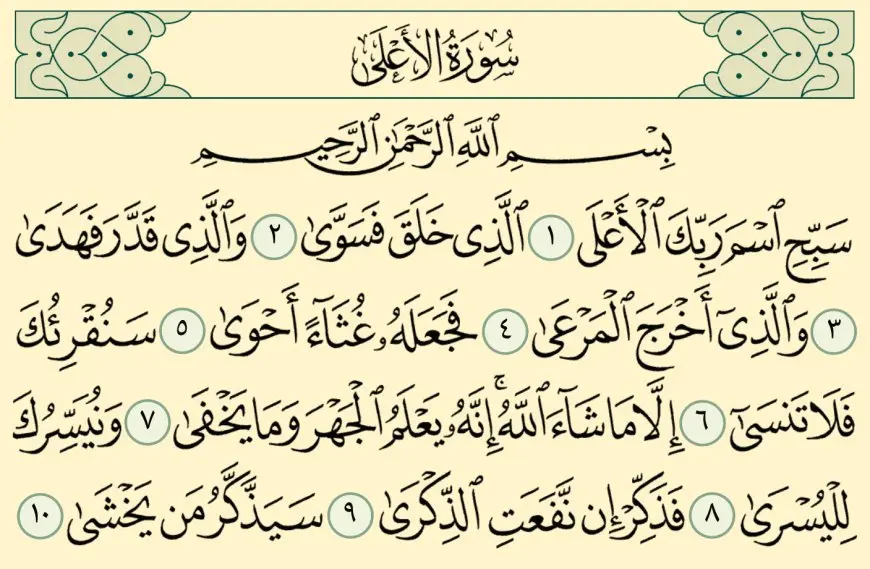 سُورَةُ الأَعْلَىٰ
بِسْمِ ٱللَّهِ ٱلرَّحْمَٰنِ ٱلرَّحِيمِ
سَبِّحِ ٱسْمَ رَبِّكَ ٱلْأَعْلَى ١ ٱلَّذِى خَلَقَ فَسَوَّىٰ ٢ وَٱلَّذِى قَدَّرَ فَهَدَىٰ
٣ وَٱلَّذِىٓ أَخْرَجَ ٱلْمَرْعَىٰ ٤ فَجَعَلَهُۥ غُثَآءً أَحْوَىٰ ٥ سَنُقْرِئُكَ
فَلَا تَنسَىٰٓ ٦ إِلَّا مَا شَآءَ ٱللَّهُۚ إِنَّهُۥ يَعْلَمُ ٱلْجَهْرَ وَمَا يَخْفَىٰ ٧ وَنُيَسِّرُكَ
لِلْيُسْرَىٰ ٨ فَذَكِّرْ إِن نَّفَعَتِ ٱلذِّكْرَىٰ ٩ سَيَذَّكَّرُ مَن يَخْشَىٰ ١٠